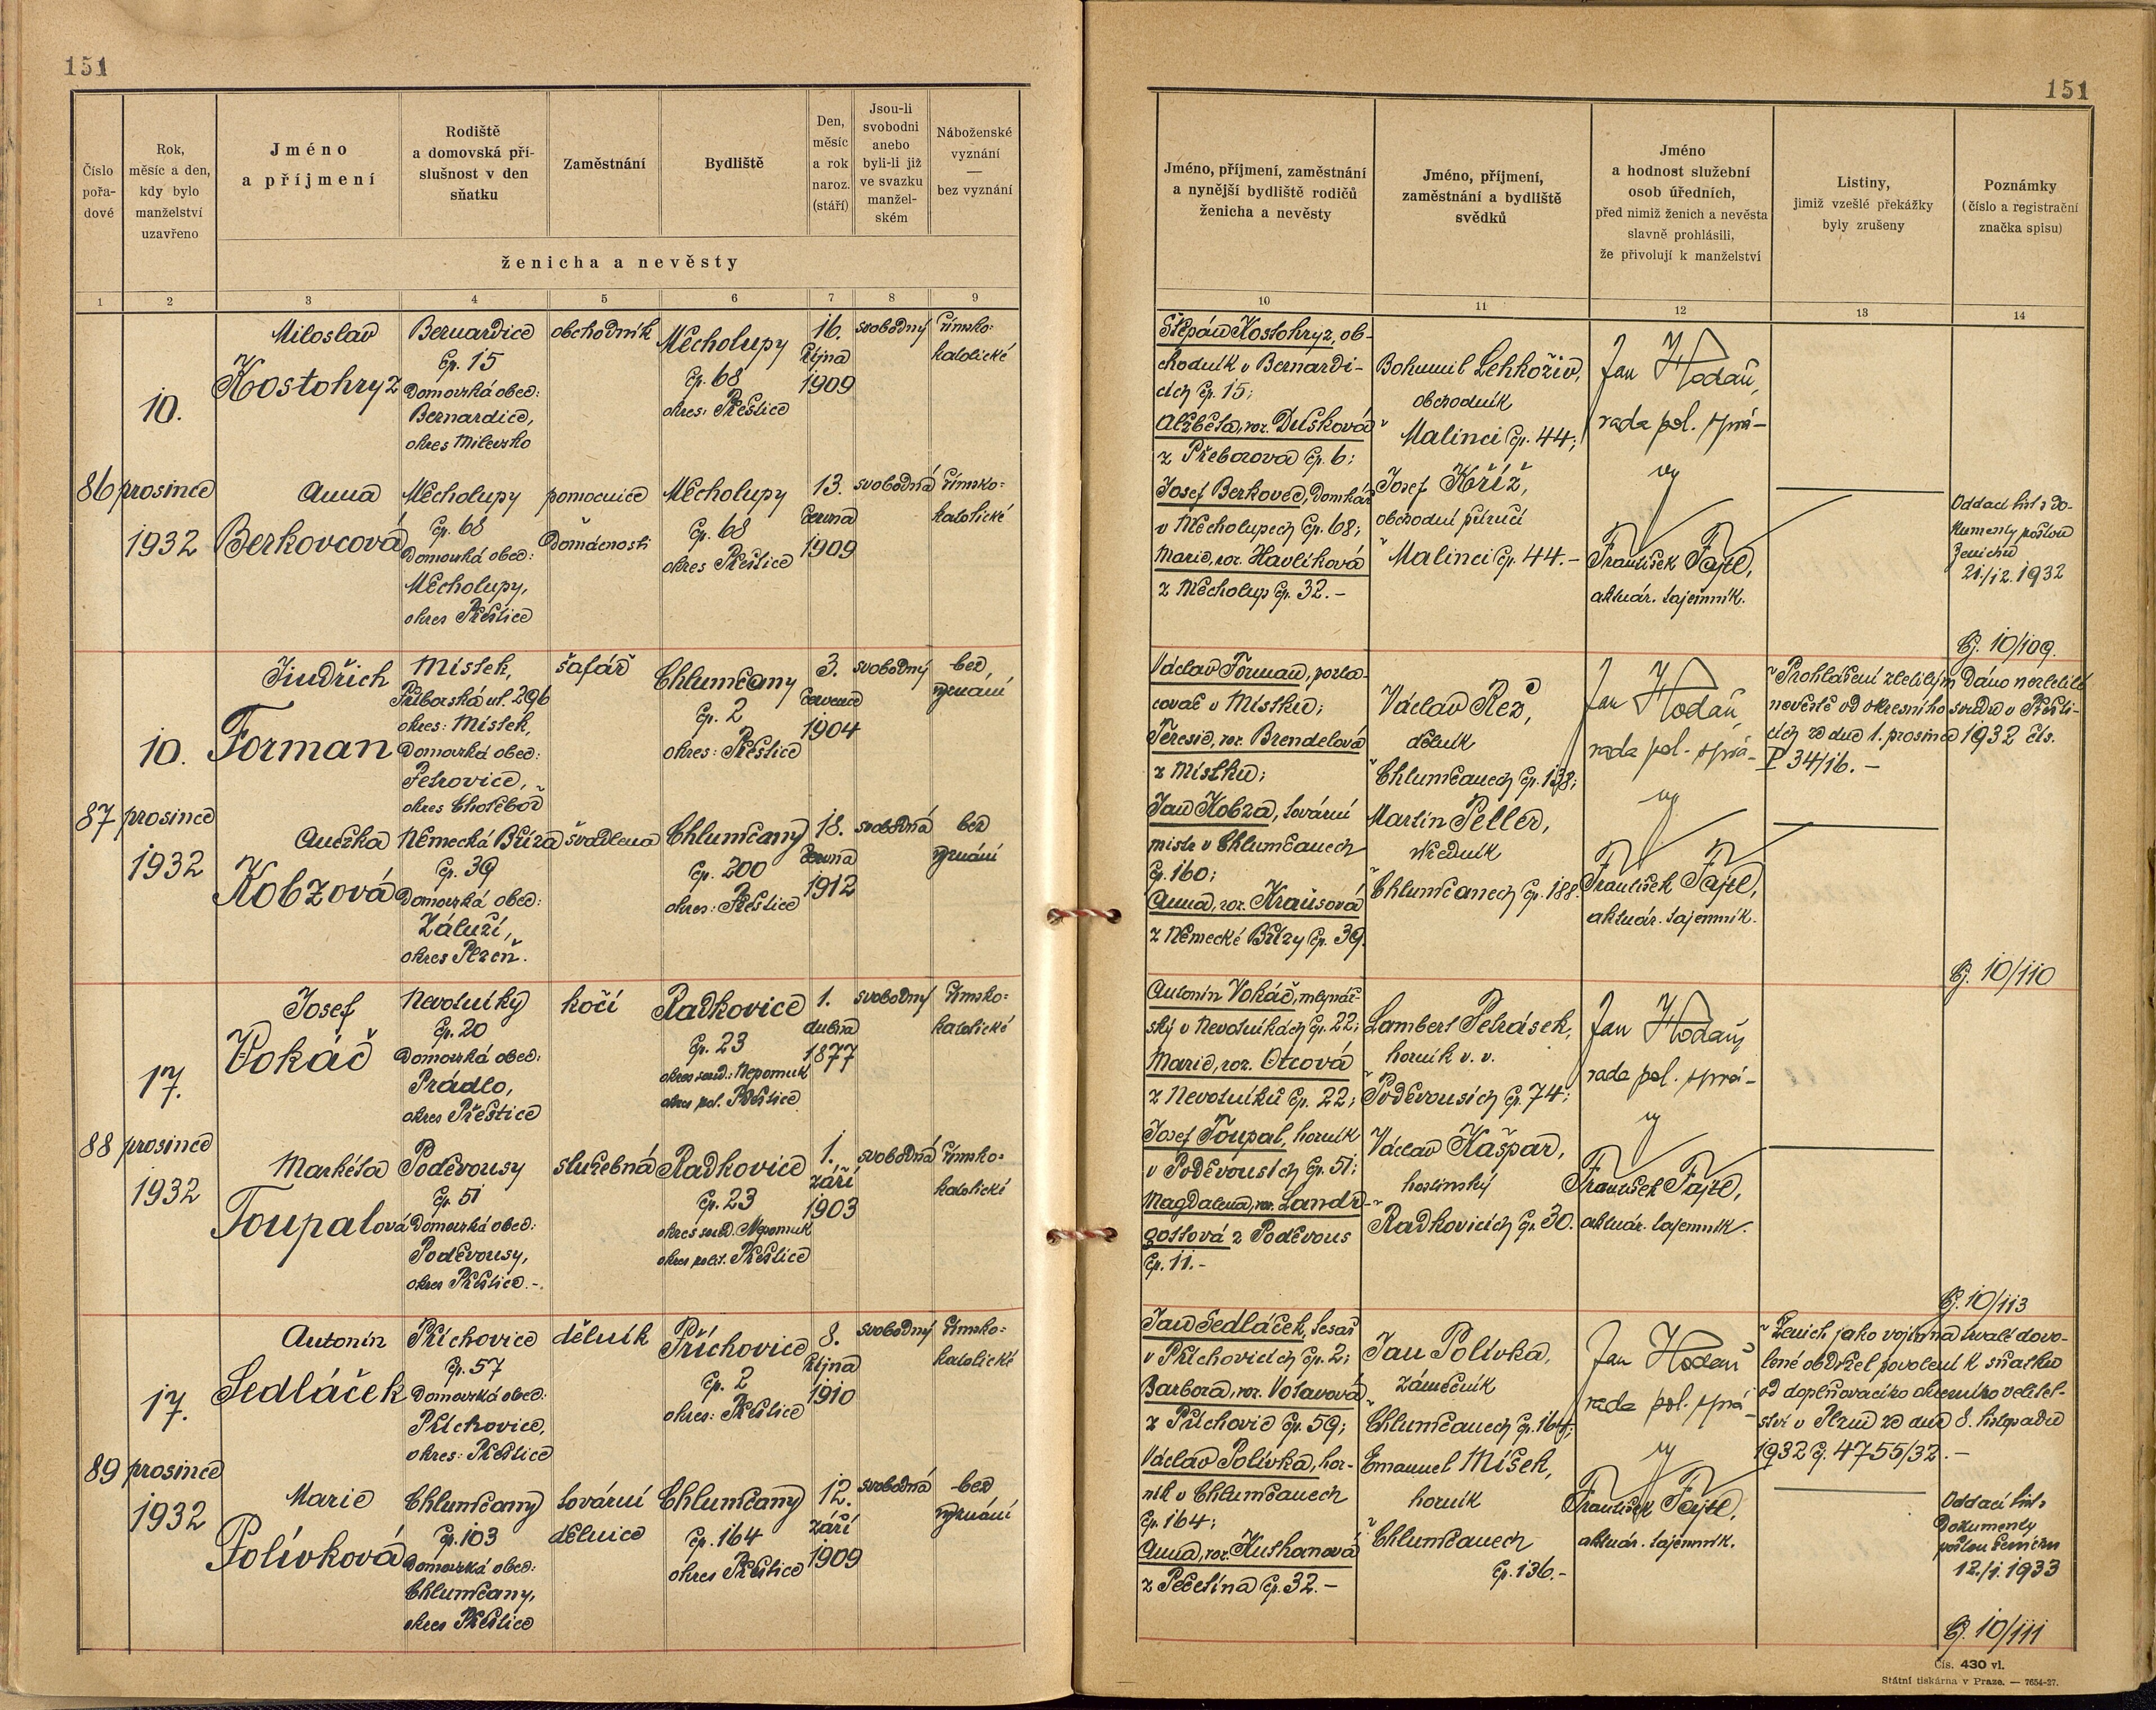 151
Číslo
pořa-
dové
Rok,
měsíc a den,
kdy bylo
manželství
uzavřeno
Jméno
a příjmení
Rodiště
a domovská pří-
slušnost v den
sňatku
Zaměstnání
Bydliště
Den,
měsíc
a rok
naroz.
(stáří)
Jsou-li
svobodni
anebo
byli-li již
ve svazku
manžel-
ském
Náboženské
vyznání
—
bez vyznání
ženicha a nevěsty
1 2 3 4 5 6 7 8 9
86
10.
prosince
1932
Miloslav
Kostohryz
Bernardice
čp. 15
Domovská obec:
Bernardice,
okres Milevsko
obchodník
Měcholupy
čp. 68
okres: Přeštice
16.
října
1909
svobodný
římsko-
katolické
Anna
Berkovcová
Měcholupy
čp. 68
Domovská obec:
Měcholupy,
okres Přeštice
pomocnice
v domácnosti
Měcholupy
čp. 68
okres Přeštice
13.
června
1909
svobodná
římsko-
katolické
87
10.
prosince
1932
Jindřich
Forman
Místek,
Příborská ul. 296
okres: Místek,
Domovská obec:
Petrovice,
okres Chotěboř
šafář
Chlumčany
čp. 2
okres: Přeštice
3.
července
1904
svobodný
bez
vyznání
Anežka
Kobzová
Německá Bříza
čp. 39
Domovská obec:
Záluží,
okres Plzeň.
švadlena
Chlumčany
čp. 200
okres: Přeštice
18.
června
1912
svobodná
bez
vyznání
88
17.
prosince
1932
Josef
Vokáč
Nevotníky
čp. 20
Domovská obec:
Prádlo,
okres Přeštice
kočí
Radkovice
čp. 23
okres soud.: Nepomuk
okres pol. Přeštice
1.
dubna
1877
svobodný
římsko-
katolické
Markéta
Toupalová
Poděvousy
čp. 51
Domovská obec:
Poděvousy,
okres Přeštice.-.
služebná
Radkovice
čp. 23
okres soud. Nepomuk
okres polit. Přeštice
1.
září
1903
svobodná
římsko-
katolické
89
17.
prosince
1932
Antonín
Sedláček
Příchovice
čp. 57
Domovská obec:
Příchovice,
okres: Přeštice
dělník
Příchovice
čp. 2
okres: Přeštice
8.
října
1910
svobodný
římsko-
katolické
Marie
Polívková
Chlumčany
čp. 103
Domovská obec:
Chlumčany,
okres Přeštice
tovární
dělnice
Chlumčany
čp. 164
okres Přeštice
12.
září
1909
svobodná
bez
vyznání
151
Jméno, příjmení, zaměstnání
a nynější bydliště rodičů
ženicha a nevěsty
Jméno, příjmení,
zaměstnání a bydliště
svědků
Jméno
a hodnost služební
osob úředních,
před nimiž ženich a nevěsta
slavně prohlásili,
že přivolují k manželství
Listiny,
jimiž vzešlé překážky
byly zrušeny
Poznámky
(číslo a registrační
značka spisu)
10 11 12 13 14
Štěpán Kostohryz, ob-
chodník v Bernardi-
cích čp. 15;
Alžběta, roz. Dušková
z Přeborova čp. 6;
Josef Berkovec, domkář
v Měcholupech čp. 68;
Marie, roz. Havlíková
z Měcholup čp. 32.-
Bohumil Lehkoživ,
obchodník
v Malinci čp. 44;
Josef Kříž,
obchodní příručí
v Malinci čp. 44.-
Jan Hodaň,
rada pol. sprá-
vy
František Fajtl,
aktuár. tajemník.
Oddací list a do-
kumenty poštou
ženichu
21./12. 1932
Čj. 10/109.
Václav Forman, pozla-
covač v Místku;
Terezie, roz. Brendelová
z Místku;
Jan Kobza, tovární
mistr v Chlumčanech
čp. 160;
Anna, roz. Krausová
z Německé Břízy čp. 39.
Václav Řež,
dělník
v Chlumčanech čp. 138;
Martin Peller,
úředník
v Chlumčanech čp. 188.
Jan Hodaň,
rada pol. sprá-
vy
František Fajtl,
aktuár. tajemník.
Prohlášení zletilým dáno nezletilé
nevěstě od okresního soudu v Přešti-
cích ze dne 1. prosince 1932 čís.
P 34/16.-
Čj. 10/110
Antonín Vokáč, mlynář-
ský v Nevotníkách čp. 22;
Marie, roz. Otcová
z Nevotníků čp. 22;
Josef Toupal, horník
v Poděvousích čp. 51;
Magdalena, roz. Landr-
gottová z Poděvous
čp. 11.-
Lambert Petrásek,
horník v. v.
v Poděvousích čp. 74;
Václav Kašpar,
hostinský
v Radkovicích čp. 30.
Jan Hodaň,
rada pol. sprá-
vy
František Fajtl,
aktuár. tajemník.
Čj. 10/113
Jan Sedláček, tesař
v Příchovicích čp. 2;
Barbora, roz. Votavová
z Příchovic čp. 59;
Václav Polívka, hor-
ník v Chlumčanech
čp. 164;
Anna, roz. Kuthanová
z Pečetína čp. 32.-
Jan Polívka,
zámečník
v Chlumčanech čp. 164;
Emanuel Míšek,
horník
v Chlumčanech
čp. 136.-
Jan Hodaň
rada pol. sprá-
vy
František Fajtl,
aktuár. tajemník.
Ženich jako vojín na trvalé dovo-
lené obdržel povolení k sňatku
od doplňovacího okresního velitel-
ství v Plzni ze dne 8. listopadu
1932 čj. 4755/32.-
Oddací list a
dokumenty
poštou ženichu
12./1. 1933
Čj. 10/111
Čís. 430 vl.
Státní tiskárna v Praze. — 7654-27.